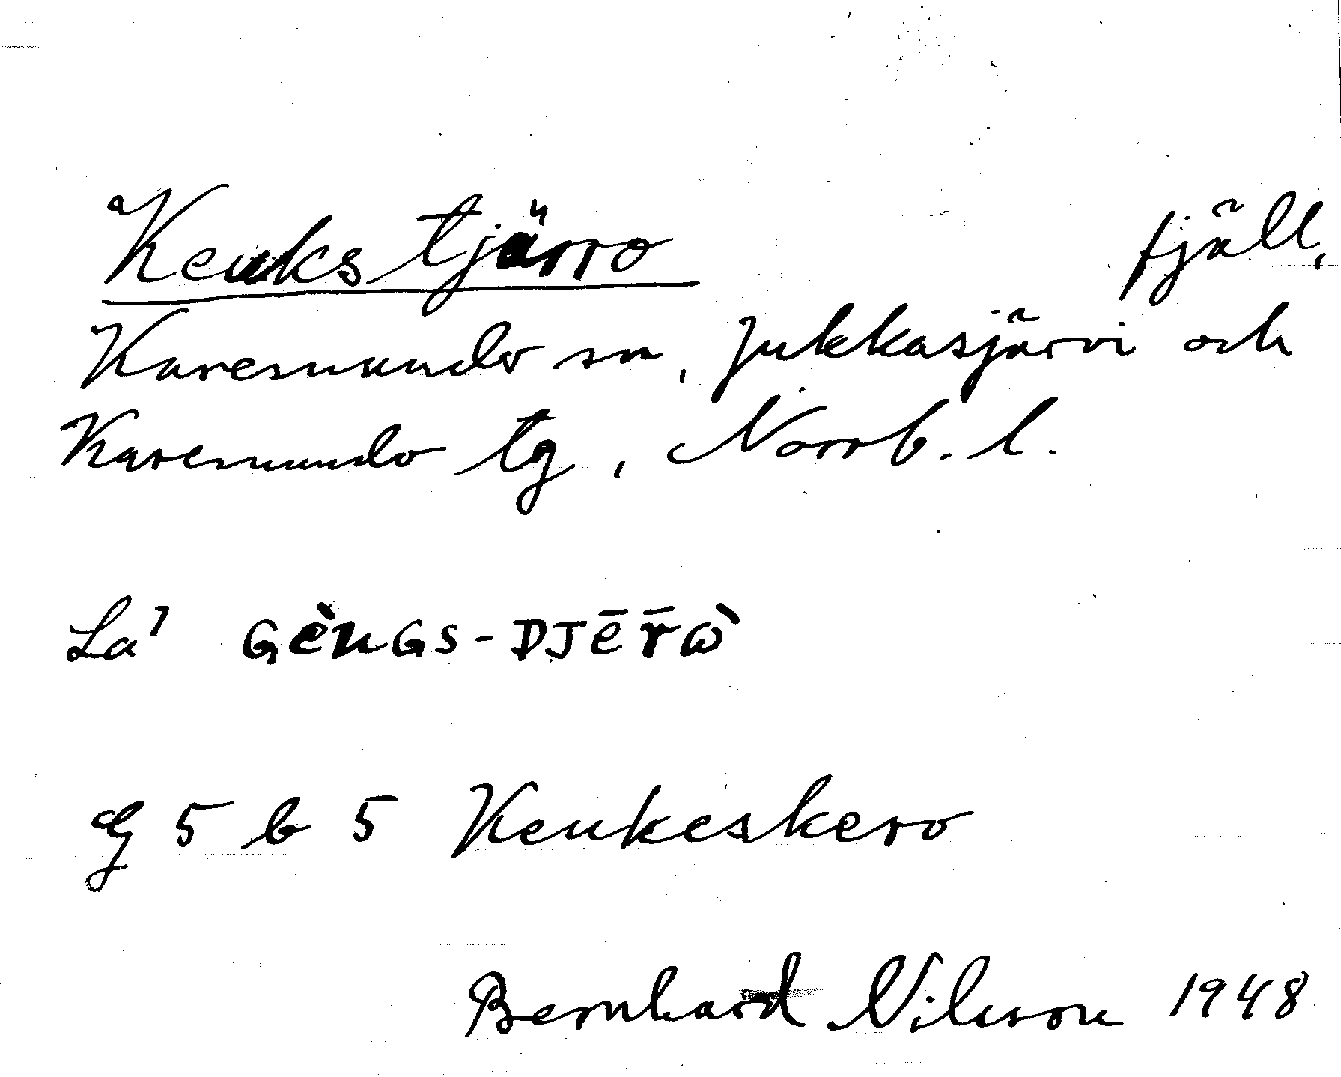 Keukstjärro fjäll,
Karesuando sn, Jukkasjärvi och
Karesuando tg, Norrb. l.
La' GèuGs-DJēr̄ὼ
G 5 b 5 Keukeskero
Bernhard Nilsson 1948